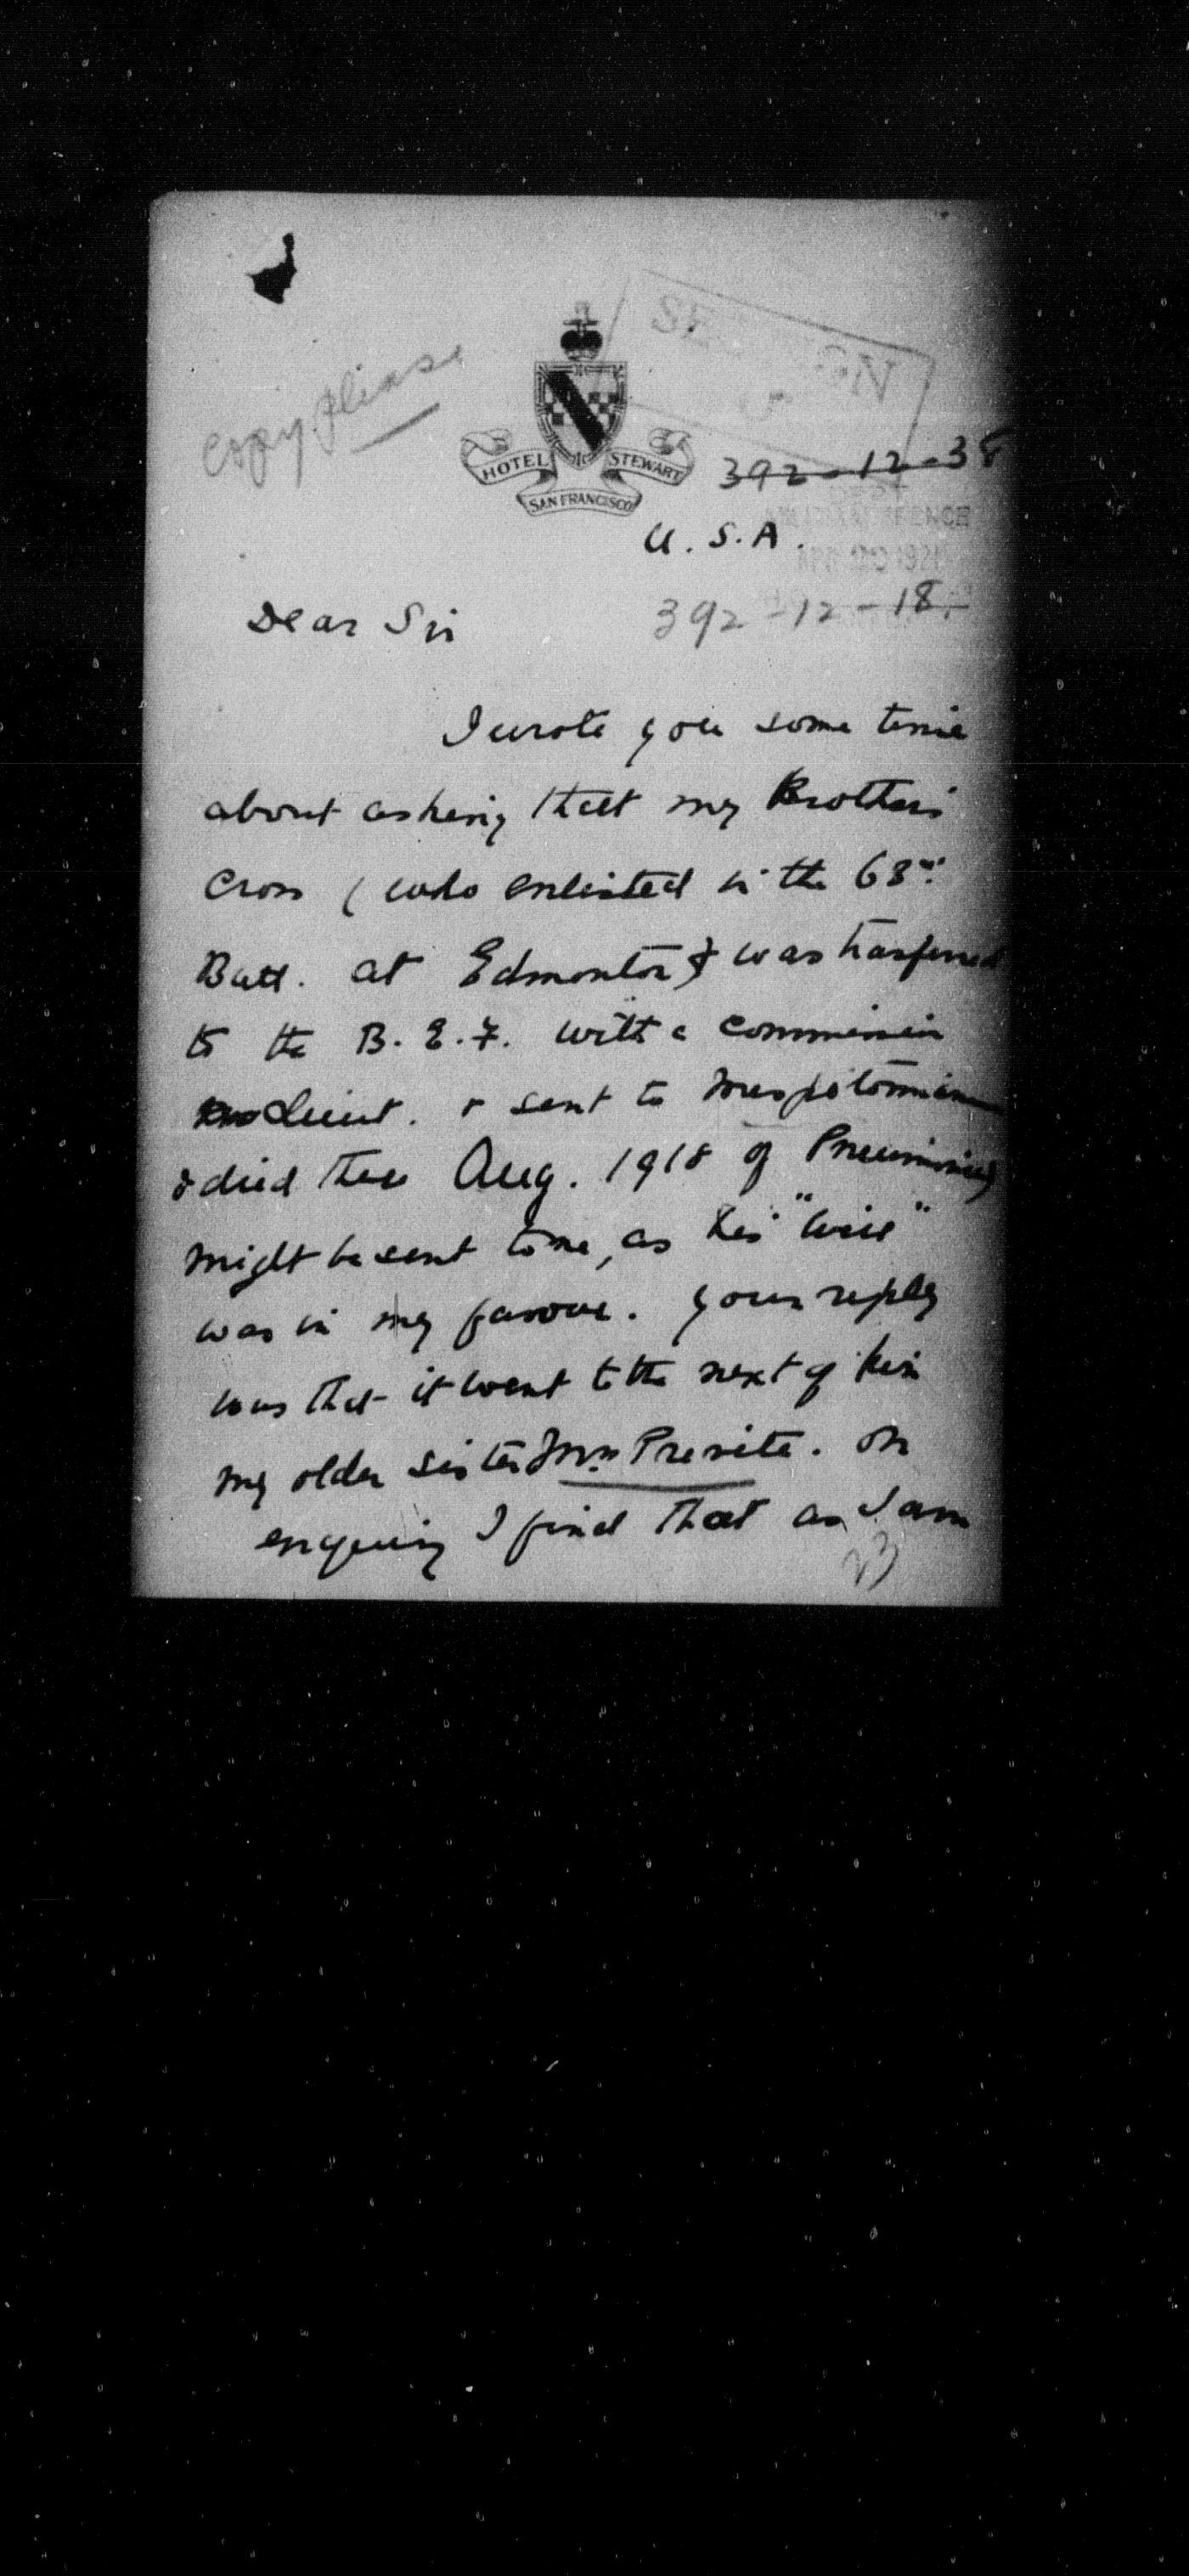 Copy please
HOTEL STEWART
SAN FRANCISCO
392-12-38
U.S.A.
392-12-18.
Dear Sir
I wrote you some time
about asking that my Brothers
Cross (who enlisted in the 63rd
Batt. at Edmonton & was trasferred
to the B.E.F. with a commission
Lieut. & sent to
& died there Aug. 1918 of Pneumonia)
might be sent to me, as his "Will"
was in my favour. your reply
was that it went to the next of kin
my older sister Mrs Previte. On
enquiry I find that as I am
23